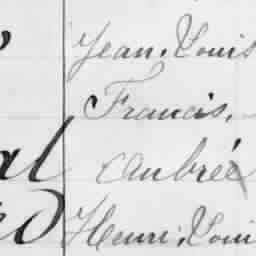 Jean. Louis
Francis.
Aubrée
al
Henri. Loui